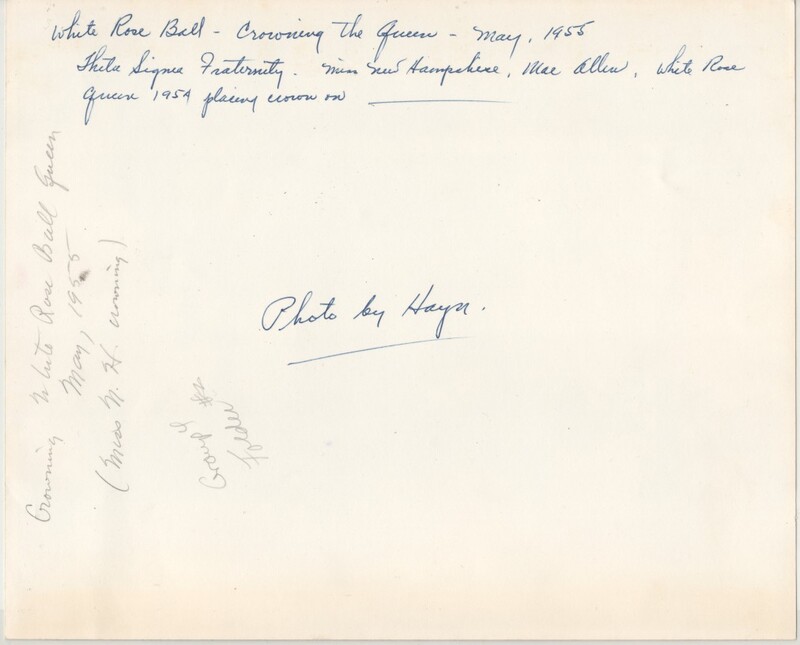 White Rose Ball - Crowning the Queen - May, 1955
Theta Sigma Fraternity. Miss New Hampshire, Mae Allen, White Rose
Queen 1954 placing crown on
Photo by Hayn.
Crowning White Rose Ball Queen
May, 1955
(Miss N. H. crowning)
Group
folder